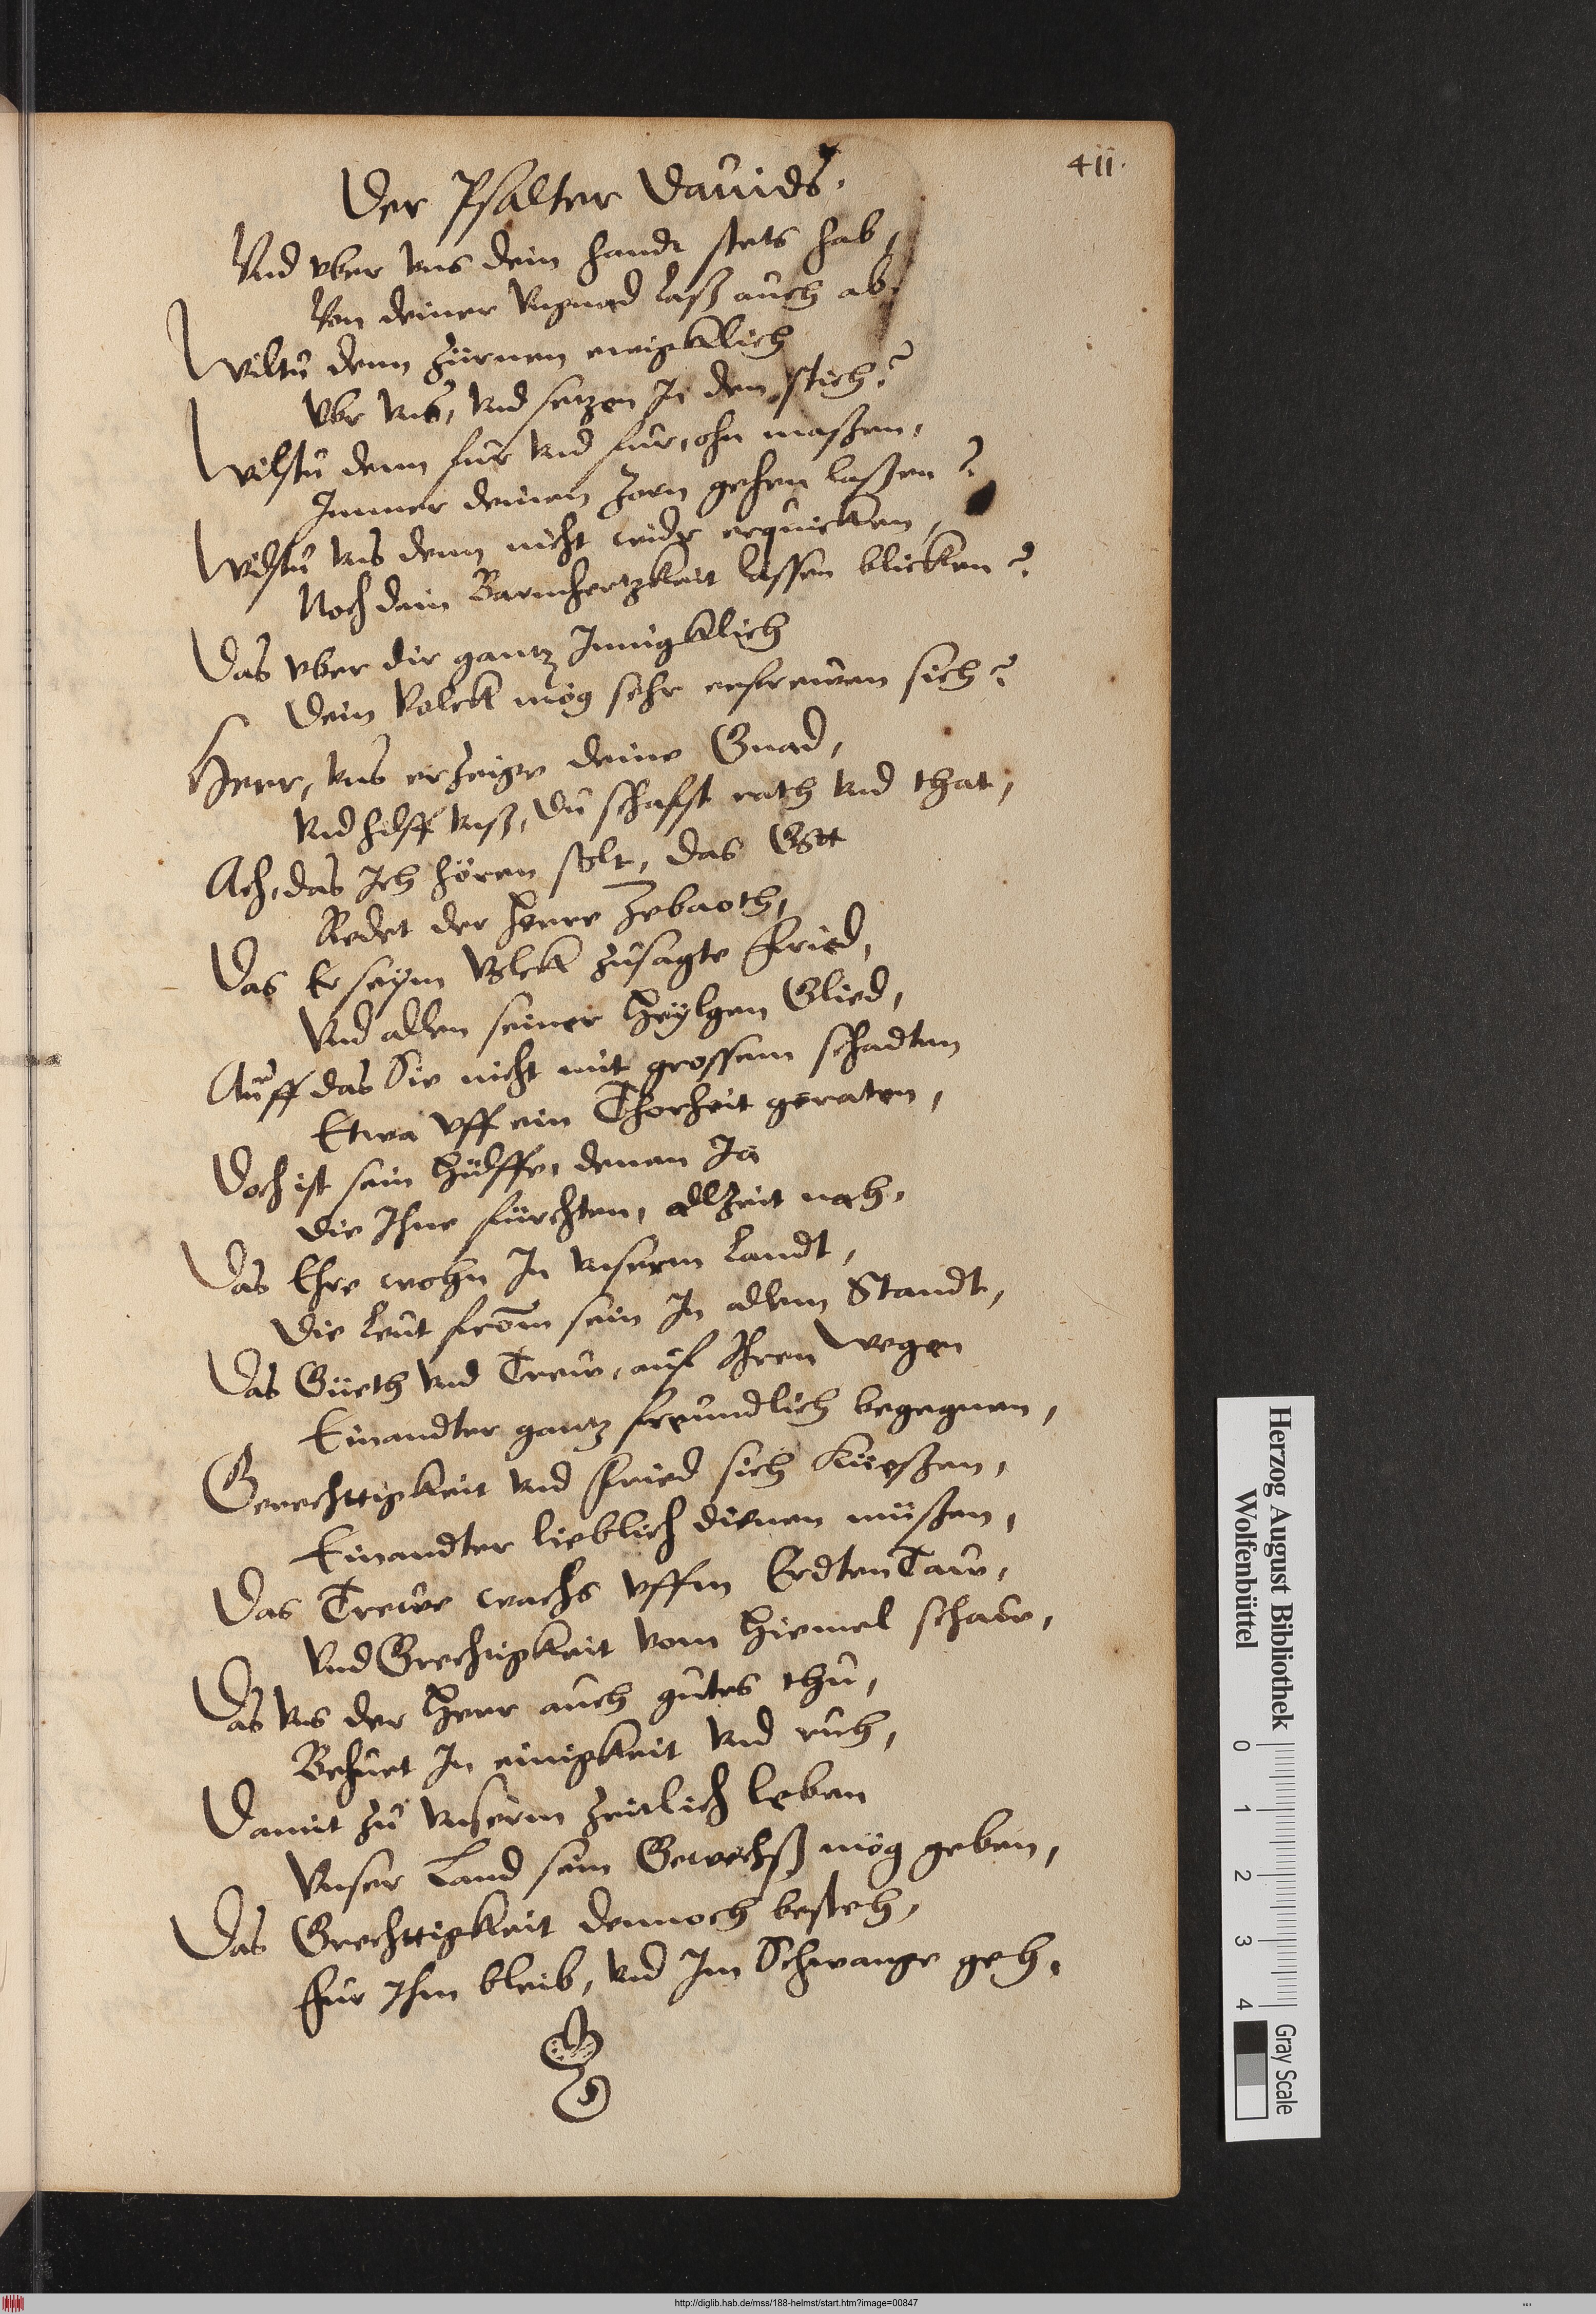 411.
Der Psalter Dauids.
Vnd vber vns dein handt stets hab,
Von deiner Vngnad laß auch ab.
Wiltu denn zürnen ewigklich
Vbr vns, vnd setzen In den stich?
Wilstu denn fur vnd fur, ohn maßen,
Immer deinen zorn gehen laßen?
Wilstu vns denn nicht widr erquicken,
Noch dein Barmhertzkeit lassen blicken?
Das vber dir gantz Innigklich
Dein Volck mög sehr erfrewen sich?
Herr, vns erzeige deine Gnad,
Vnd hilff vnß, du schafst rath vnd that,
Ach, das Ich hören solt, das Gott
Redet der Herre Zebaoth,
Das Er seym Volck zusagte Fried,
Vnd allen seiner Heylgen Glied,
Auff das Sie nicht mit grossem schadten
Etwa vff ein Thorheit geraten,
Doch ist sein Hülffe, denen Ja
Die Ihne fürchten, allzeit nah,
Das Ehre wohn In vnserm Landt,
Die Leut from sein In allem Standt,
Das Güeth vnd Trew, auf Ihren Wegen
Einandter gantz freundlich begegnen,
Gerechttigkeit vnd Fried sich Küeßen,
Einandter lieblich dienen müßen,
Das Trewe wachs vffm Erdten Taw,
Vnd Grechtigkeit vom Hiemel schaw,
Das vns der Herr auch gutes thu,
Behuet In einigkeit vnd ruh,
Damit zu vnserm zeitlich Leben
Vnser Land sein Gewechß mög geben,
Das Grechttigkeit dennoch besteh,
Fur Ihm bleib, vnd Im Schwange geh.
Herzog August Bibliothek
Wolfenbüttel
0 1 2 3 4
Gray Scale
http://diglib.hab.de/mss/188-helmst/start.htm?image=00847